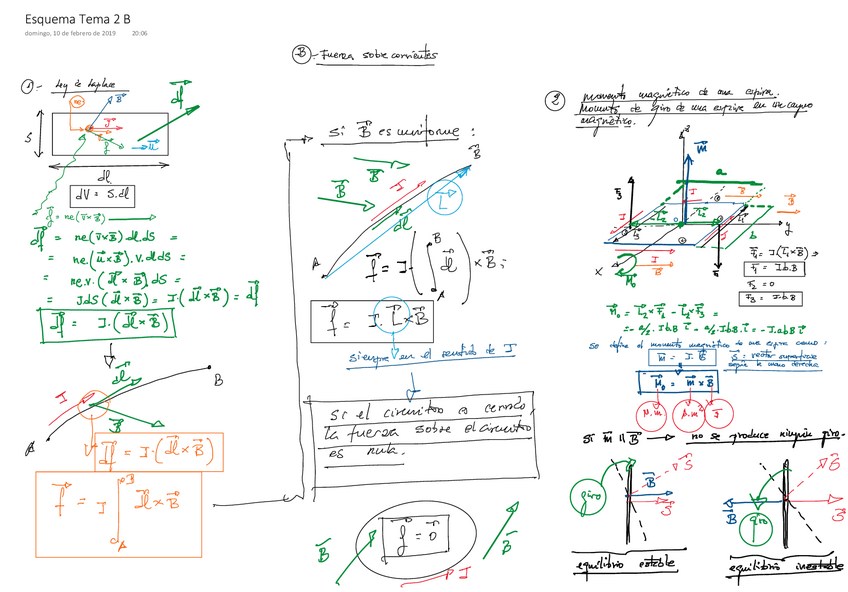 Esquema Tema 2 B
domingo, 10 de febrero de 2019 20:06
B.- Fuerza sobre corrientes
1.- Ley de Laplace
S
dl
dV = S.dl
f = ne(v×B)
df = ne(v×B) dl.dS =
= ne(u×B).v.dl dS =
= ne.v.(dl×B) dS =
= JdS(dl×B) = I.(dl×B) = df
df = I.(dl×B)
I
dl
B
A
B
df = I.(dl×B)
f = I ∫ dl×B
si B es uniforme:
B
B
I
dl
L
A
B
f = I.(∫ dl)×B =
f = I.L×B
siempre en el sentido de I
Si el circuito es cerrado,
la fuerza sobre el circuito
es nula.
f = 0
B
B
I
2
momento magnético de una espira.
Momento de giro de una espira en un campo
magnético.
z
m
a
B
y
b
x
M₀
F₁ = I(L₁×B) ⇒
F₁ = I.b.B
F₂ = 0
F₃ = I.b.B
M₀ = L₂×F₁ - L₂×F₃ =
= -a/2.I.b.B i - a/2.I.b.B.i = -I.a.b.B i
Se define el momento magnético de una espira como:
m = I.S
S: vector superficie
según la mano derecha
M₀ = m×B
Si m ∥ B → no se produce ningún giro.
giro
B
S
S
equilibrio estable
B
giro
S
S
equilibrio inestable